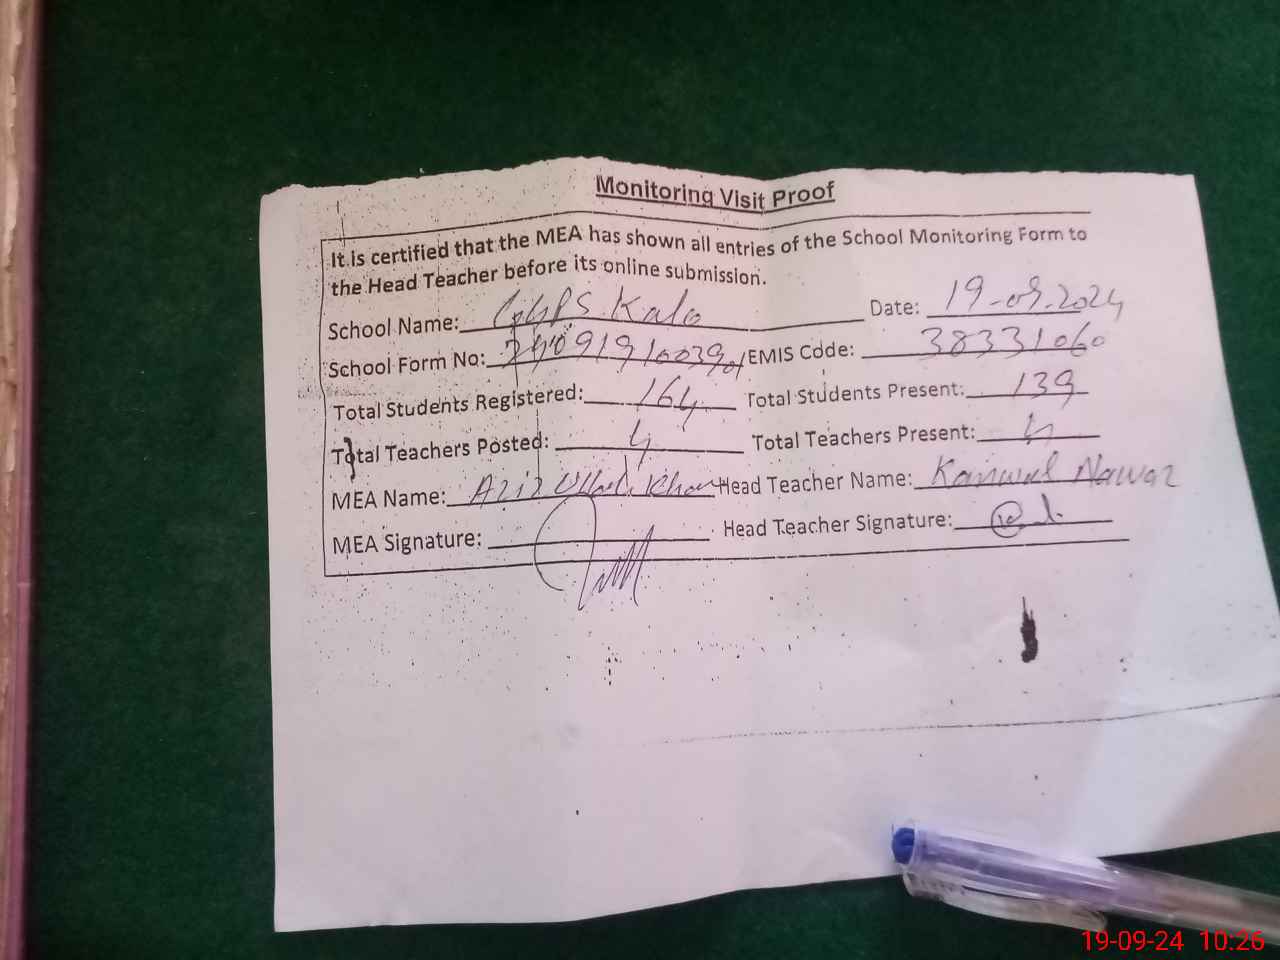 Monitoring Visit Proof
It is certified that the MEA has shown all entries of the School Monitoring Form to
the Head Teacher before its online submission.
School Name: GGPS Kalo Date: 19-09-2024
School Form No: EMIS Code: 38331060
Total Students Registered: 164 Total Students Present: 139
Total Teachers Posted: 4 Total Teachers Present: 4
MEA Name: Aziz Ullah Khan Head Teacher Name: Kanwal Nawaz
MEA Signature: Head Teacher Signature:
19-09-24 10:26